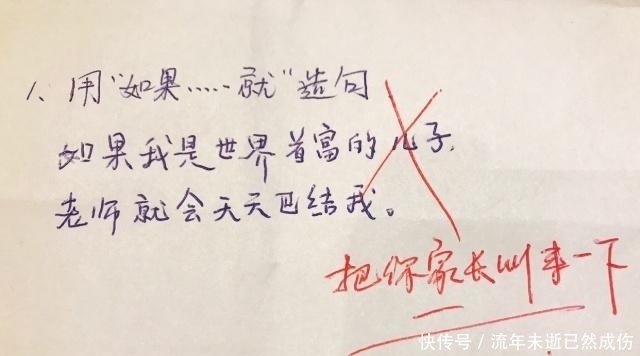 1、用“如果……就”造句
如果我是世界首富的儿子,
老师就会天天巴结我。
把你家长叫来一下
快传号/流年未逝已然成伤